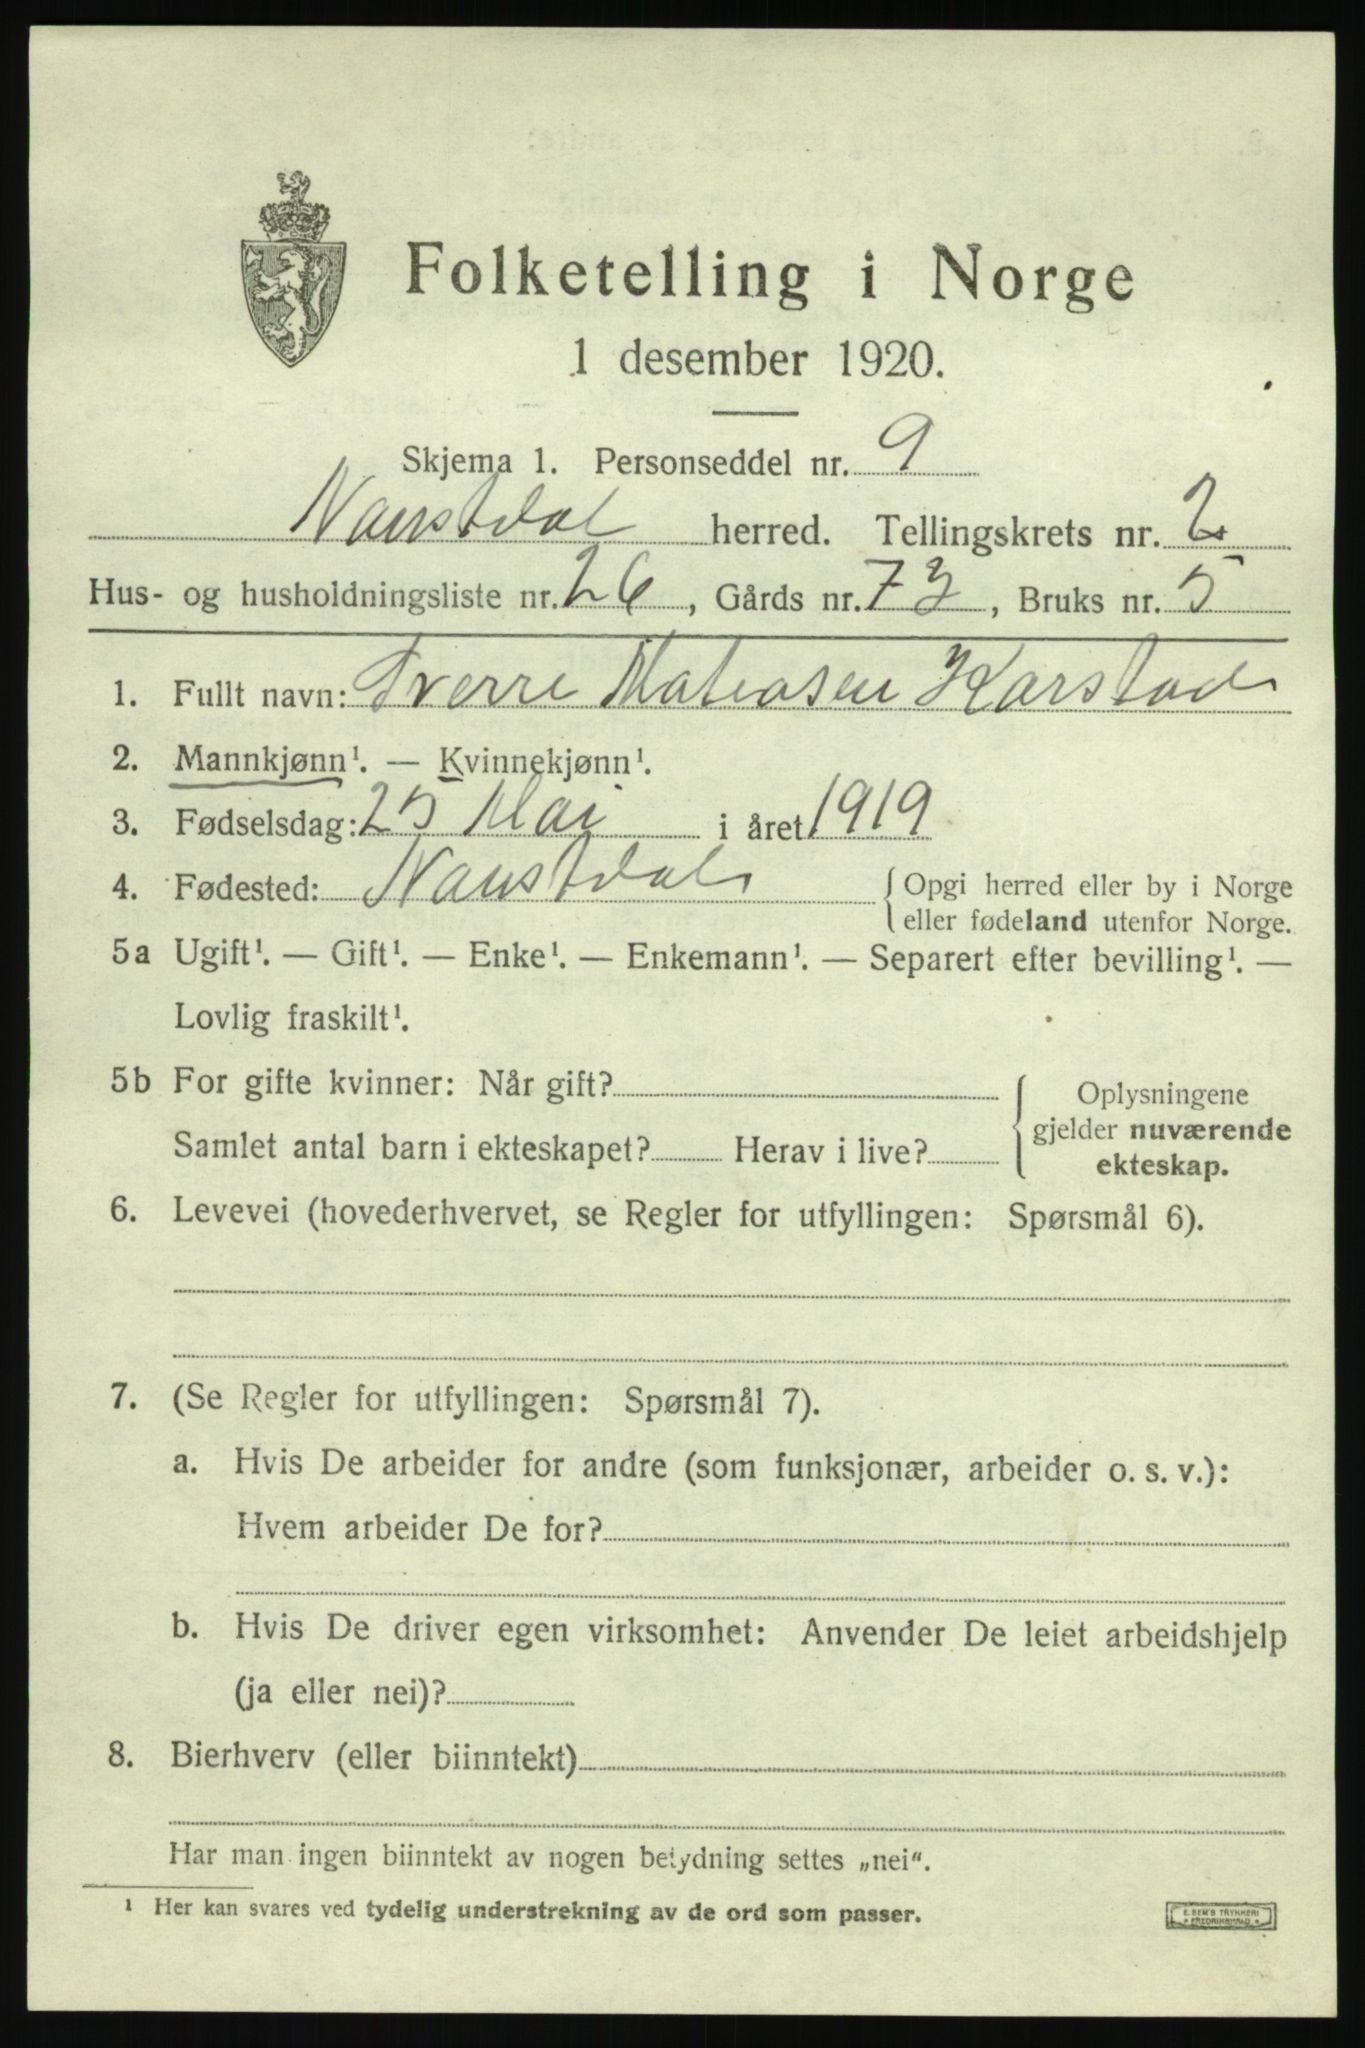 Folketelling i Norge
1 desember 1920.
Skjema 1. Personseddel nr. 9
Naustdal herred. Tellingskrets nr. 2
Hus- og husholdningsliste nr. 26, Gårds nr. 73, Bruks nr. 5
1. Fullt navn: Sverre Mateasen Karstad
2. Mannkjønn¹. — Kvinnekjønn¹.
3. Fødselsdag: 25 Mai i året 1919
4. Fødested: Naustdal { Opgi herred eller by i Norge
eller fødeland utenfor Norge.
5a Ugift¹. — Gift¹. — Enke¹. — Enkemann¹. — Separert efter bevilling¹. —
Lovlig fraskilt¹.
5b For gifte kvinner: Når gift?
Samlet antal barn i ekteskapet? Herav i live?
{ Oplysningene
gjelder nuværende
ekteskap.
6. Levevei (hovederhvervet, se Regler for utfyllingen: Spørsmål 6).
7. (Se Regler for utfyllingen: Spørsmål 7).
a. Hvis De arbeider for andre (som funksjonær, arbeider o. s. v.):
Hvem arbeider De for?
b. Hvis De driver egen virksomhet: Anvender De leiet arbeidshjelp
(ja eller nei)?
8. Bierhverv (eller biinntekt)
Har man ingen biinntekt av nogen betydning settes „nei“.
¹ Her kan svares ved tydelig understrekning av de ord som passer.
E. SEM'S TRYKKERI
FREDRIKSHALD